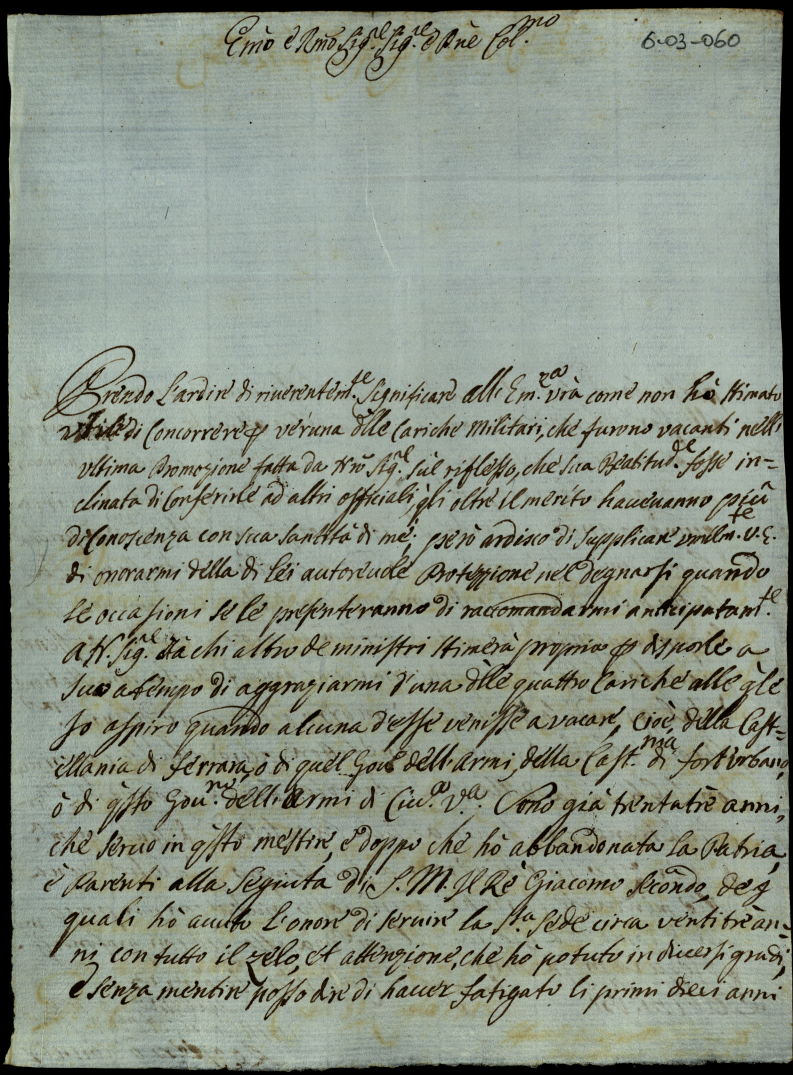 Emo e Rmo Sig.re Sig.re e Prne Col.mo
6-03-060
Prendo l'ardire di riuerentem.te significare all'Em.za vra come non hò stimato
utile di Concorrere p veruna dlle Cariche Militari, che furono vacanti nell'
vltima Promozione fatta da Nro Sig.re sul riflesso, che sua Beatitud.e fosse in=
clinata di Conferirle ad altri officiali, gli oltre il merito haueuanno più
di Conoscenza con sua santità di me; però ardisco di supplicare vmilm.te V.E.
di onorarmi della di lei autoreuole Protezzione nel degnarsi quando
le occasioni se le presenteranno di raccomandarmi anticipatam.te
a N. Sig.re chi altro de ministri stimerà proprio p disporle a
suo a tempo di aggraziarmi d'una dlle quattro Cariche alle qle
Io aspiro quando alcuna d'esse venisse a vacare, Cioè, della Cast=
ellania di Ferrara, ò di quel Gou.o dell'armi, della Cast.nza di fort'Urbano,
ò di qsto Gou.no dell'Armi di Ciu.a V.a. Sono già trentatrè anni,
che seruo in qsto mestire, e doppo che hò abbandonata la Patria,
e Parenti alla Seguita di S. M. Il Rè Giacomo Secondo, de q
quali hò auuto l'onore di seruire la S.ta Sede circa ventitrè an=
ni, con tutto il zelo, et attenzione, che hò potuto in diuersi gradi,
e senza mentire posso dire di hauer fatigato li primi dieci anni